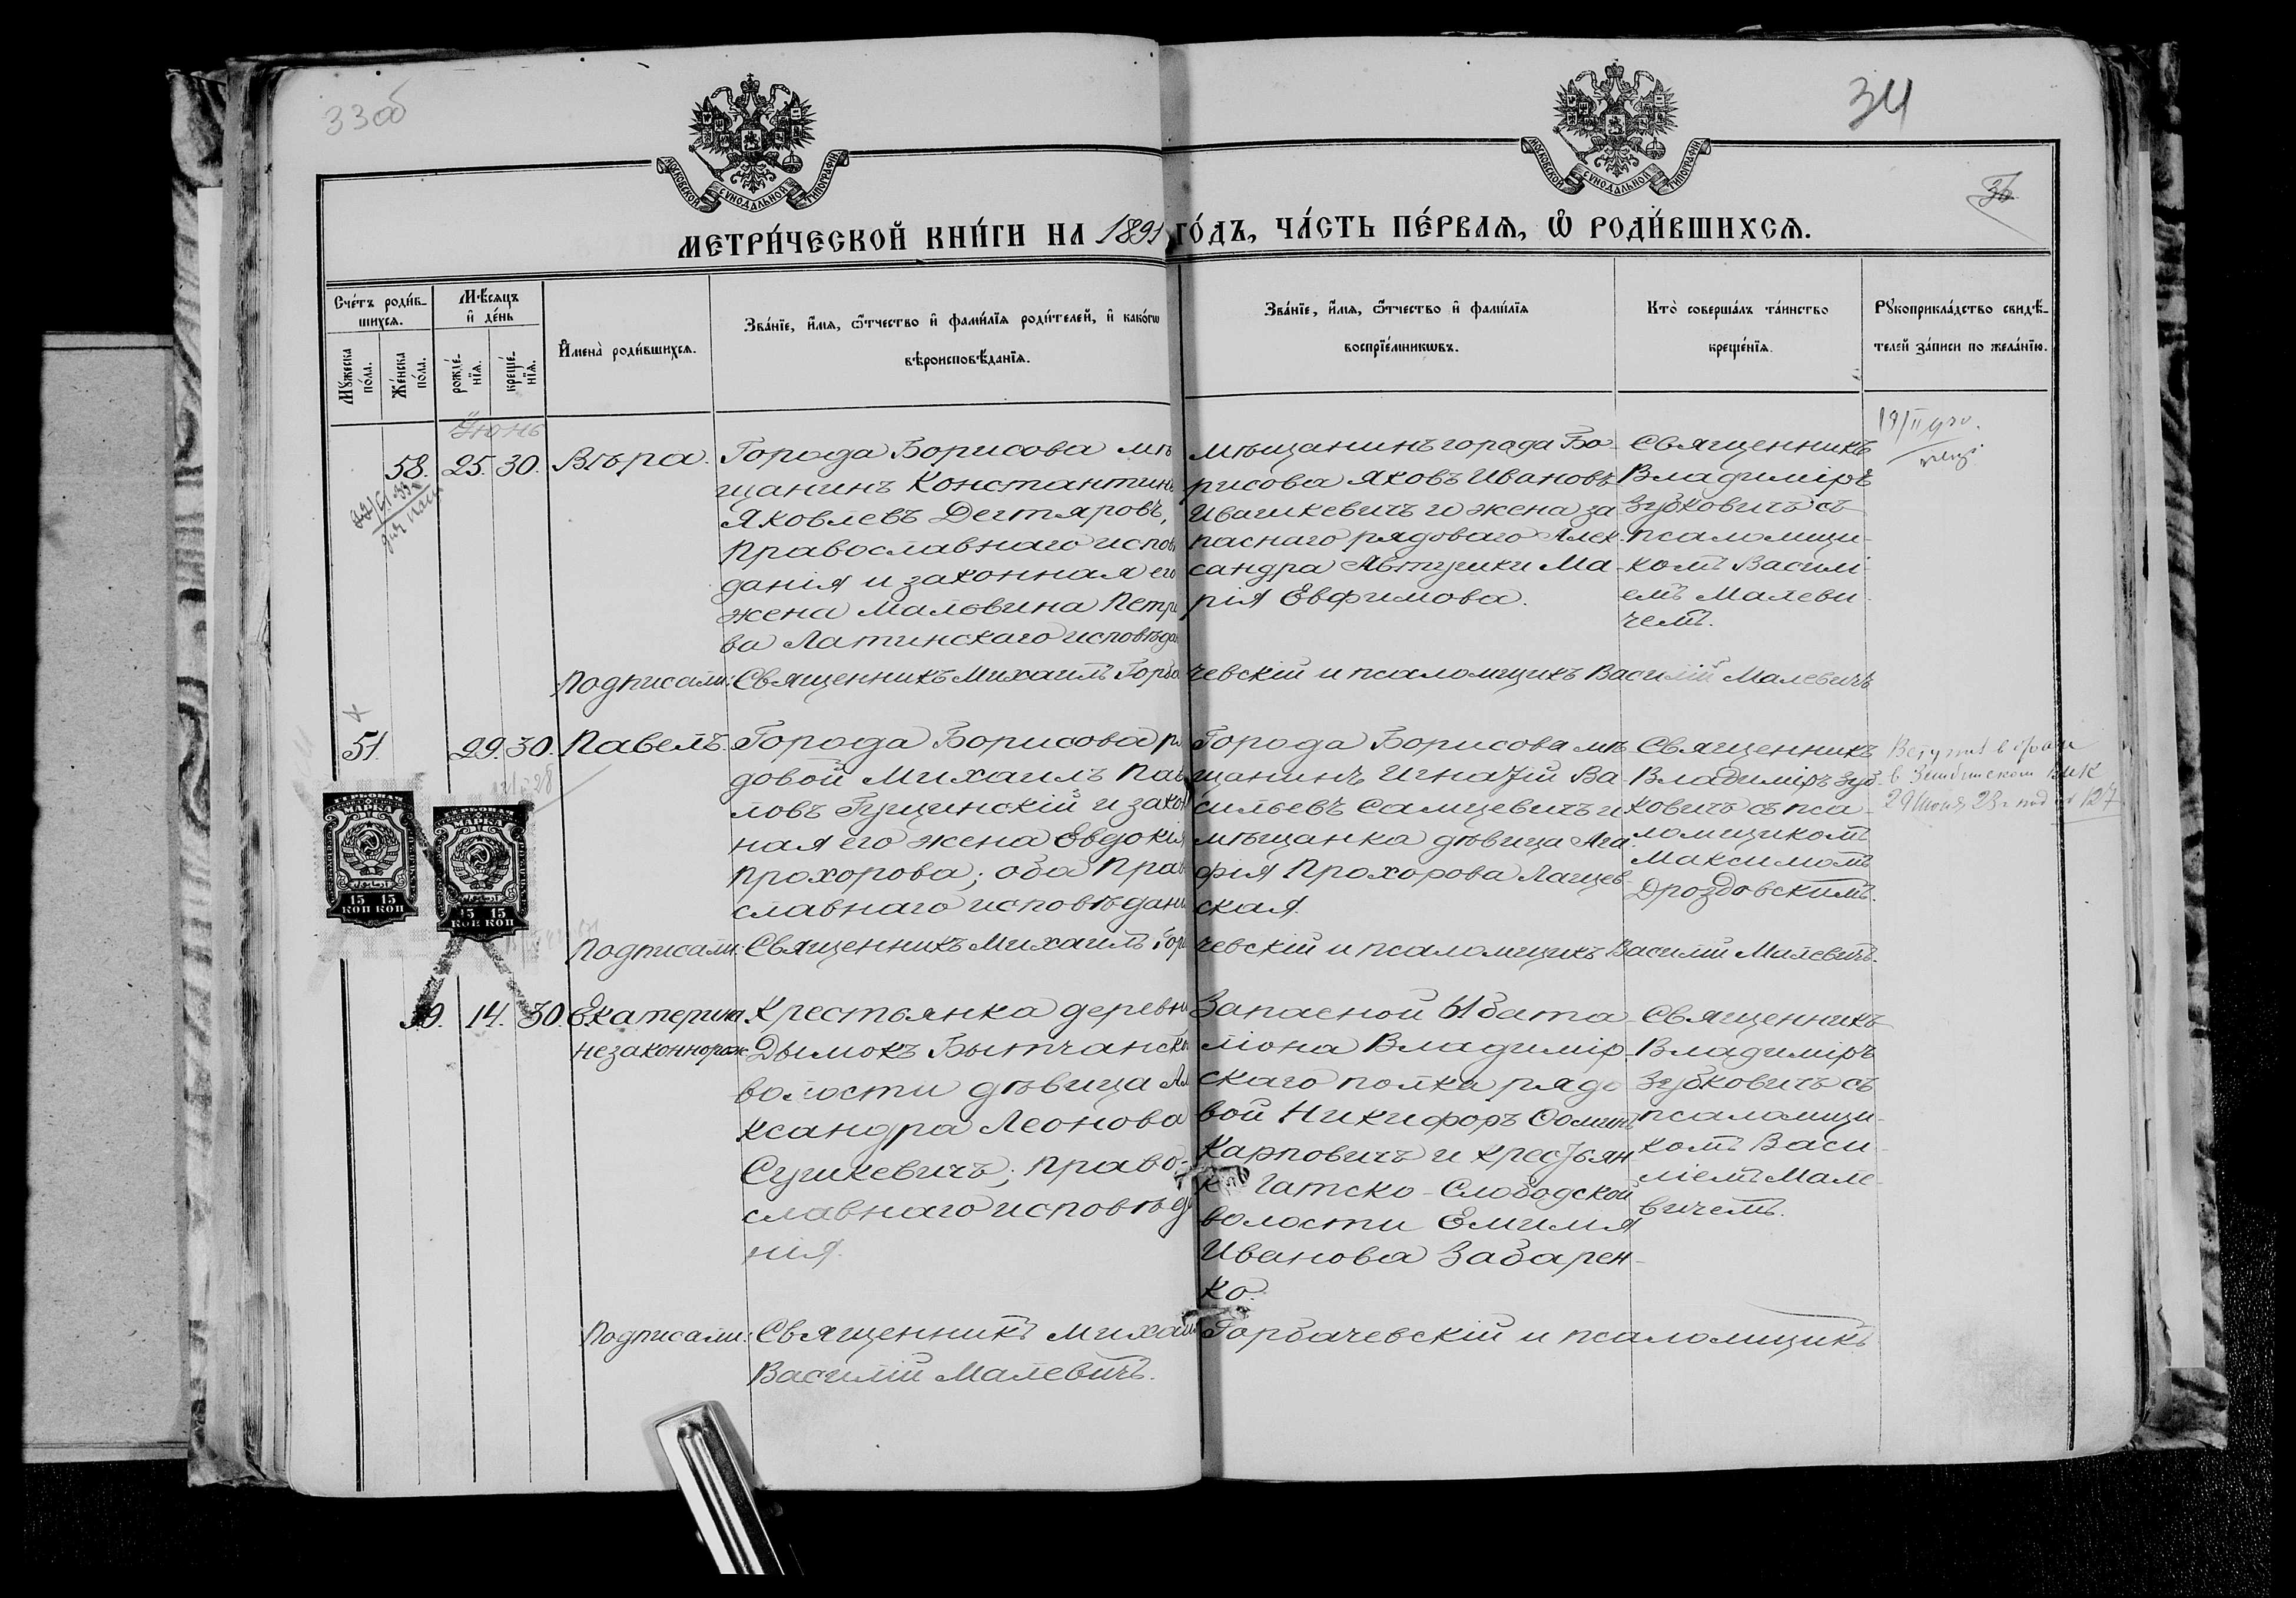 33об
34
36
МОСКОВСКОЙ СѴНОДАЛЬНОЙ ТИПОГРАФІИ
МОСКОВСКОЙ СѴНОДАЛЬНОЙ ТИПОГРАФІИ
МЕТРИ́ЧЕСКОЙ КНИ́ГИ НА 1891 ГО́ДЪ, ЧА́СТЬ ПЕ́РВАѦ, Ѽ РОДИ́ВШИХСѦ.
Сче́тъ роди́в-
шихсѧ.
Мꙋ́жеска
по́ла.
Же́нска
по́ла.
Мѣ́сѧцъ
и҆ де́нь
рожде́-
нїѧ.
креще́-
нїѧ.
И҆мена̀ роди́вшихсѧ.
Зва́нїе, и҆́мѧ, ѻ҆́тчество и҆ фами́лїѧ роди́телей, и҆ како́гѡ
вѣроисповѣ́данїѧ.
Зва́нїе, и҆́мѧ, ѻ҆́тчество и҆ фами́лїѧ
воспрїе́мникѡвъ.
Кто̀ соверша́лъ та́инство
креще́нїѧ.
Рꙋкоприкла́дство свидѣ́-
телей за́писи по жела́нїю.
Іюнь
58. 25. 30. Вѣра.
Города Борисова мѣ
щанинъ Константинъ
Яковлевъ Дегтяровъ,
Православнаго испов
данія и законная его
жена Мальвина Петро
ва Латинскаго исповѣда
мѣщанинъ города Бо-
рисова Яковъ Ивановъ
Ивашкевичъ и жена за
паснаго рядоваго Алек-
сандра Автушки Ма-
рія Евфимова.
Священникъ
Владиміръ
Зубковичъ съ
псаломщи-
комъ Василі-
емъ Малеви-
чемъ.
Подписали: Священникъ Михаилъ Горба
чевскій и псаломщикъ Василій Малевичъ
51. 29. 30. Павелъ.
Города Борисова ря
довой Михаилъ Пав
ловъ Гущинскій и закон
ная его жена Евдокія
Прохорова; оба Прав
славнаго исповѣдані
Города Борисова мѣ
щанинъ Игнатій Ва-
сильевъ Самцевичъ и
мѣщанка дѣвица Ага-
фія Прохорова Лащев-
ская.
Священникъ
Владиміръ Зуб-
ковичъ съ пса-
ломщикомъ
Максимомъ
Дроздовскимъ.
Вступил в брак
29 Июня 28 г. под № 127
ГЕРБОВАЯ
МАРКА
15 15
КОП КОП
ГЕРБОВАЯ
МАРКА
15 15
КОП КОП
Подписали: Священникъ Михаилъ Горб
чевскій и псаломщикъ Василій Малевичъ.
59. 14. 30. Екатерина
незаконнорож
Крестьянка деревни
Дымокъ Бытчанской
волости дѣвица Але
ксандра Леонова
Сушкевичъ; право-
славнаго исповѣда
нія.
Запасной 61 бата
ліона Владимір-
скаго полка рядо
вой Никифоръ Ѳомин
Карповичъ и крестьян
Гатско-Слободской
волости Емилія
Иванова Забарен-
ко.
Священникъ
Владиміръ
Зубковичъ съ
псаломщи-
комъ Васи-
ліемъ Мале-
вичемъ.
Подписали: Священникъ Михаил
Горбачевскій и псаломщикъ
Василій Малевичъ.